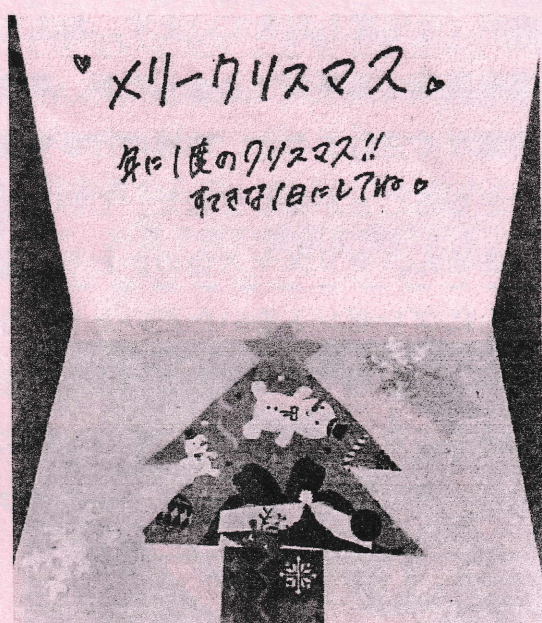 ♥メリークリスマス。
年に1度のクリスマス!!
すてきな1日にしてね♥